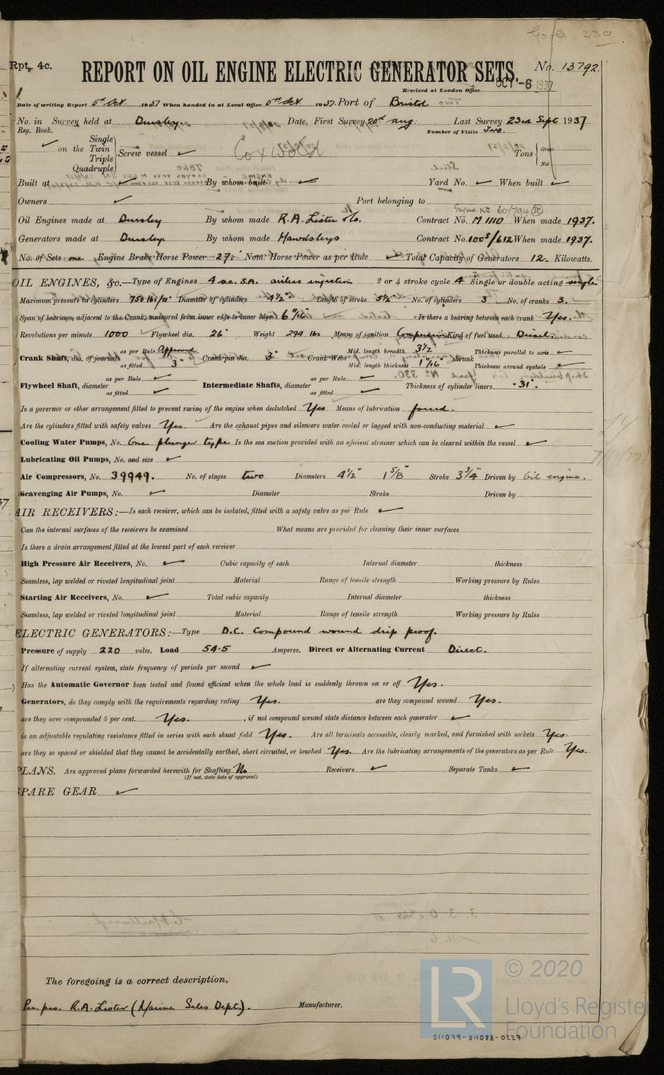 Rpt. 4c. REPORT ON OIL ENGINE ELECTRIC GENERATOR SETS. No. 13792
Received at London Office OCT -6 1937
Date of writing Report 5th Oct 1937 When handed in at Local Office 5th Oct 1937 Port of Bristol
No. in Survey held at Dursley Date, First Survey 20th Aug: Last Survey 23rd Sept 1937
Reg. Book. Number of Visits Two.
Single
on the Twin Screw vessel Tons Gross
Triple Net
Quadruple
Built at By whom built Yard No. When built
Owners Port belonging to
Oil Engines made at Dursley By whom made R.A. Lister & Co. Contract No. M.1110 When made 1937.
Generators made at Dursley By whom made Contract No. 1005/612 When made 1937.
No. of Sets one Engine Brake Horse Power 27. Nom. Horse Power as per Rule Total Capacity of Generators 12. Kilowatts.
OIL ENGINES, &c.—Type of Engines 4 s.c. S.A. airless injection 2 or 4 stroke cycle 4 Single or double acting single
Maximum pressure in cylinders 750 lbs/□" Diameter of cylinders 4½" Length of stroke 5½" No. of cylinders 3 No. of cranks 3.
Span of bearings, adjacent to the Crank, measured from inner edge to inner edge 6 Is there a bearing between each crank Yes.
Revolutions per minute 1000 Flywheel dia. 26" Weight 294 lbs Means of ignition Compression Kind of fuel used Diesel.
Crank Shaft, dia. of journals as per Rule Approved as fitted 3" Crank pin dia. 3" Crank Webs Mid. length breadth 3½" Mid. length thickness 1 shrunk Thickness parallel to axis Thickness around eyehole
Flywheel Shaft, diameter as per Rule as fitted Intermediate Shafts, diameter as per Rule as fitted Thickness of cylinder liners .31".
Is a governor or other arrangement fitted to prevent racing of the engine when declutched Yes Means of lubrication forced.
Are the cylinders fitted with safety valves Yes. Are the exhaust pipes and silencers water cooled or lagged with non-conducting material
Cooling Water Pumps, No. One plunger type Is the sea suction provided with an efficient strainer which can be cleared within the vessel
Lubricating Oil Pumps, No. and size
Air Compressors, No. 39949. No. of stages two Diameters 4½" 1⅝" Stroke 3¾" Driven by Oil engine.
Scavenging Air Pumps, No. Diameter Stroke Driven by
AIR RECEIVERS:—Is each receiver, which can be isolated, fitted with a safety valve as per Rule
Can the internal surfaces of the receivers be examined What means are provided for cleaning their inner surfaces
Is there a drain arrangement fitted at the lowest part of each receiver
High Pressure Air Receivers, No. Cubic capacity of each Internal diameter thickness
Seamless, lap welded or riveted longitudinal joint Material Range of tensile strength Working pressure by Rules
Starting Air Receivers, No. Total cubic capacity Internal diameter thickness
Seamless, lap welded or riveted longitudinal joint Material Range of tensile strength Working pressure by Rules
ELECTRIC GENERATORS:—Type D.C. Compound wound drip proof.
Pressure of supply 220 volts. Load 54.5 Amperes. Direct or Alternating Current Direct.
If alternating current system, state frequency of periods per second
Has the Automatic Governor been tested and found efficient when the whole load is suddenly thrown on or off Yes.
Generators, do they comply with the requirements regarding rating Yes. are they compound wound Yes.
are they over compounded 5 per cent. Yes. , if not compound wound state distance between each generator
is an adjustable regulating resistance fitted in series with each shunt field Yes. Are all terminals accessible, clearly marked, and furnished with sockets Yes
are they so spaced or shielded that they cannot be accidentally earthed, short circuited, or touched Yes. Are the lubricating arrangements of the generators as per Rule Yes.
PLANS. Are approved plans forwarded herewith for Shafting No Receivers Separate Tanks
(If not, state date of approval)
SPARE GEAR
The foregoing is a correct description,
Per pro. R.A. Lister (Marine Sales Dept). Manufacturer.
© 2020
LR Lloyd's Register
Foundation
011079-011088-0227